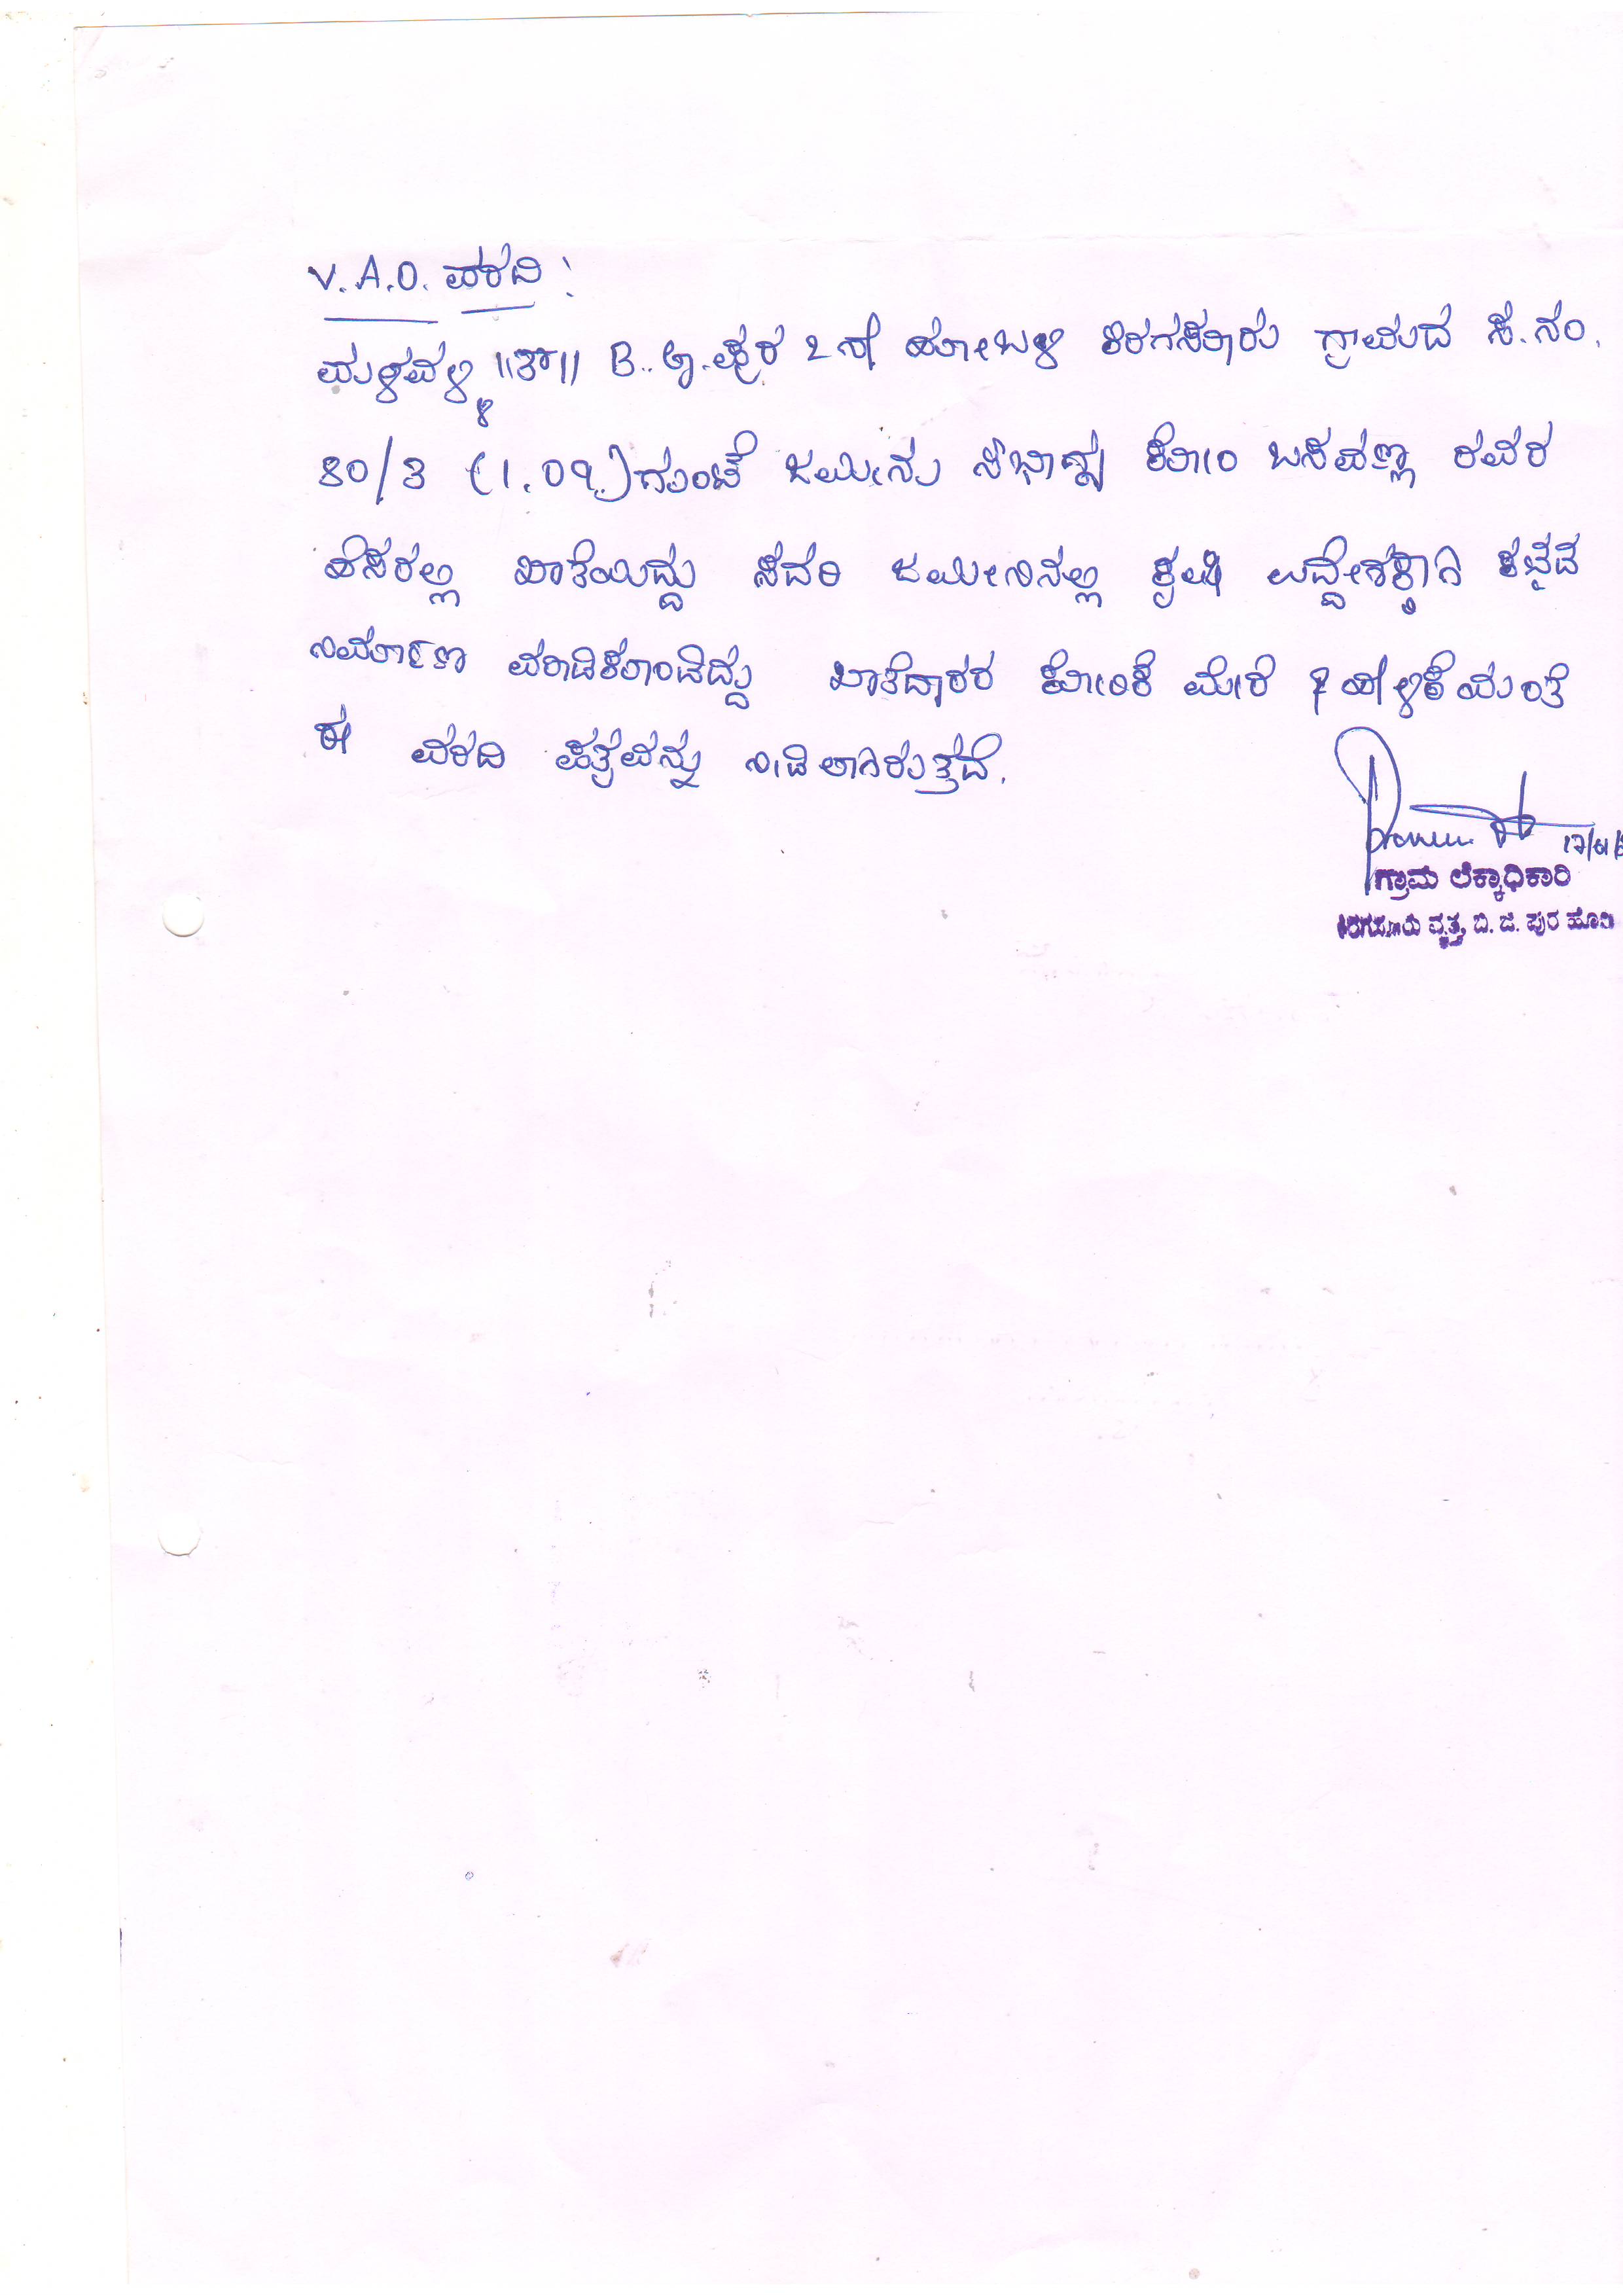 V.A.O. ವರದಿ :
ಮಳವಳ್ಳಿ ||ತಾ|| B.ಜಿ.ಪುರ 2ನೇ ಹೋಬಳಿ ಕಿರಗಸೂರು ಗ್ರಾಮದ ಸ.ನಂ.
80/3 (1.09)ಗುಂಟೆ ಜಮೀನು ಸೌಭಾಗ್ಯ ಕೋಂ ಬಸವಣ್ಣ ರವರ
ಹೆಸರಲ್ಲಿ ಖಾತೆಯಿದ್ದು ಸದರಿ ಜಮೀನಿನಲ್ಲಿ ಕೃಷಿ ಉದ್ದೇಶಕ್ಕಾಗಿ
ನಿರ್ಮಾಣ ಮಾಡಿಕೊಂಡಿದ್ದು ಖಾತೆದಾರರ ಕೋರಿಕೆ ಮೇರೆ ಹೇಳಿಕೆಯಂತೆ
ಈ ವರದಿ ಪತ್ರವನ್ನು ನೀಡಲಾಗಿರುತ್ತದೆ.
ಗ್ರಾಮ ಲೆಕ್ಕಾಧಿಕಾರಿ
ಕಿರಗಸೂರು ವೃತ್ತ, ಬಿ. ಜಿ. ಪುರ ಹೋ